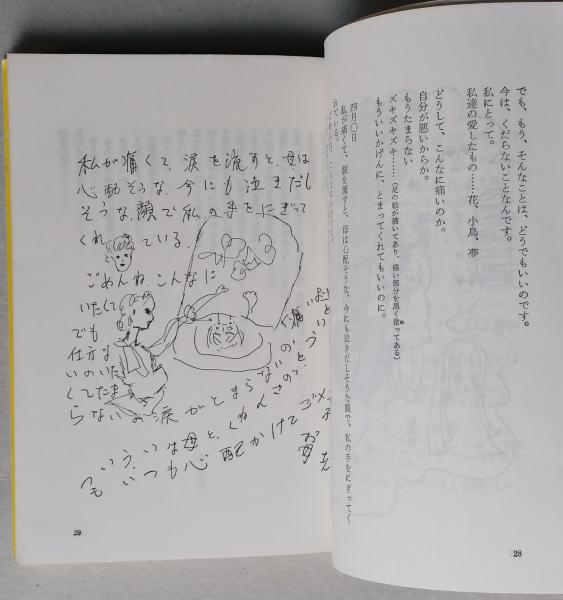 でも、もう、そんなことは、どうでもいいのです。
今は、くだらないことなんです。
私にとって。
私達の愛したもの……花、小鳥、夢
どうして、こんなに痛いのか。
自分が悪いからか。
もうたまらない
ズキズキズキ……(足の絵が描いてあり、痛い部分を黒く塗ってある)
もういいかげんに、とまってくれてもいいのに。
四月〇日
私が痛くて、涙を流すと、母は心配そうな、今にも泣きだしそうな顔で、私の手をにぎってく
れている。
28
私が痛くて、涙を流すと、母は
心配そうな、今にも泣きだし
そうな顔で私の手をにぎって
くれている.
ごめんね、こんなに
いたくて
でも
仕方な
いの、いた
くてたま
らない
涙がとまらない
痛い
いつも心配かけて
29